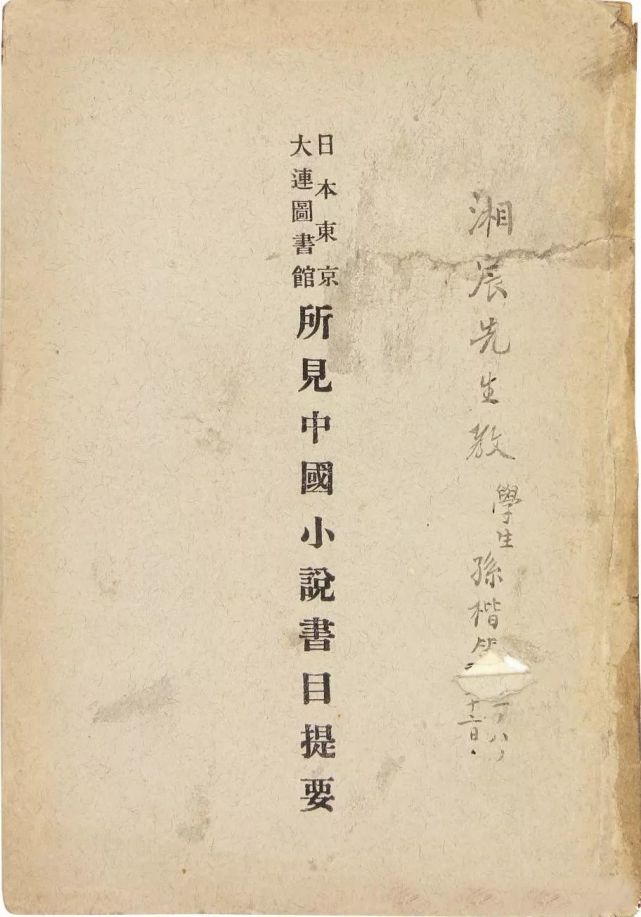 湘宸先生教
學生
孫楷第
十二日
日本東京
大連圖書館
所見中國小說書目提要